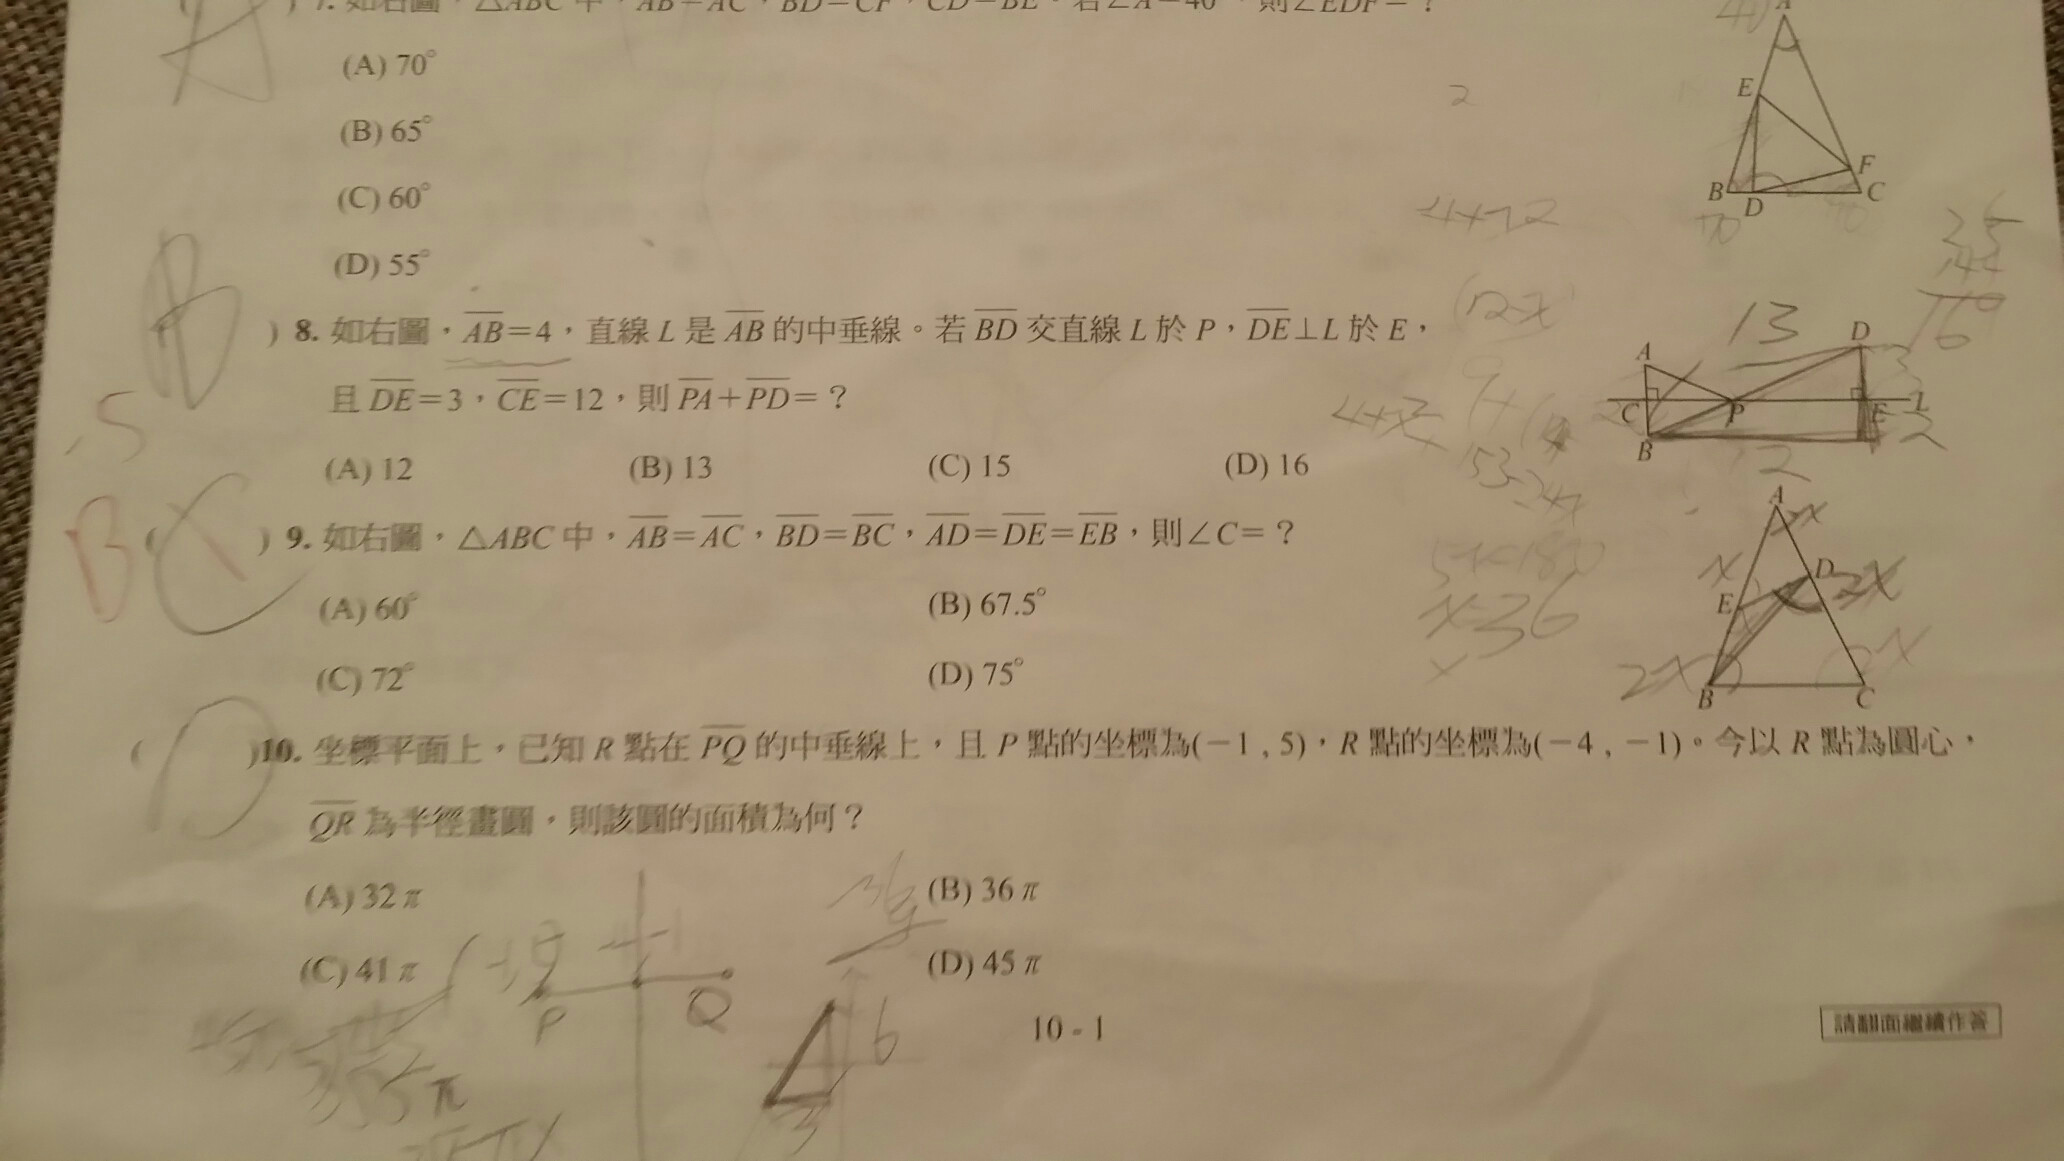 7. 如右圖，△ABC 中，AB=AC，BD=CF，CD=BE。若∠A=40°，則∠EDF=？
(A) 70°
(B) 65°
(C) 60°
(D) 55°
) 8. 如右圖，AB=4，直線 L 是 AB 的中垂線。若 BD 交直線 L 於 P，DE⊥L 於 E，
且 DE=3，CE=12，則 PA+PD=？
(A) 12 (B) 13 (C) 15 (D) 16
( ) 9. 如右圖，△ABC 中，AB=AC，BD=BC，AD=DE=EB，則∠C=？
(A) 60° (B) 67.5°
(C) 72° (D) 75°
( )10. 坐標平面上，已知 R 點在 PQ 的中垂線上，且 P 點的坐標為(－1 , 5)，R 點的坐標為(－4 , －1)。今以 R 點為圓心，
QR 為半徑畫圓，則該圓的面積為何？
(A) 32 π (B) 36 π
(C) 41 π (D) 45 π
10 - 1
請翻面繼續作答
A
E
F
B
D
C
13
A
D
C
P
E
L
B
A
D
E
B
C
B
C
D
B
5x=180
x=36
2x
P
Q
6
3